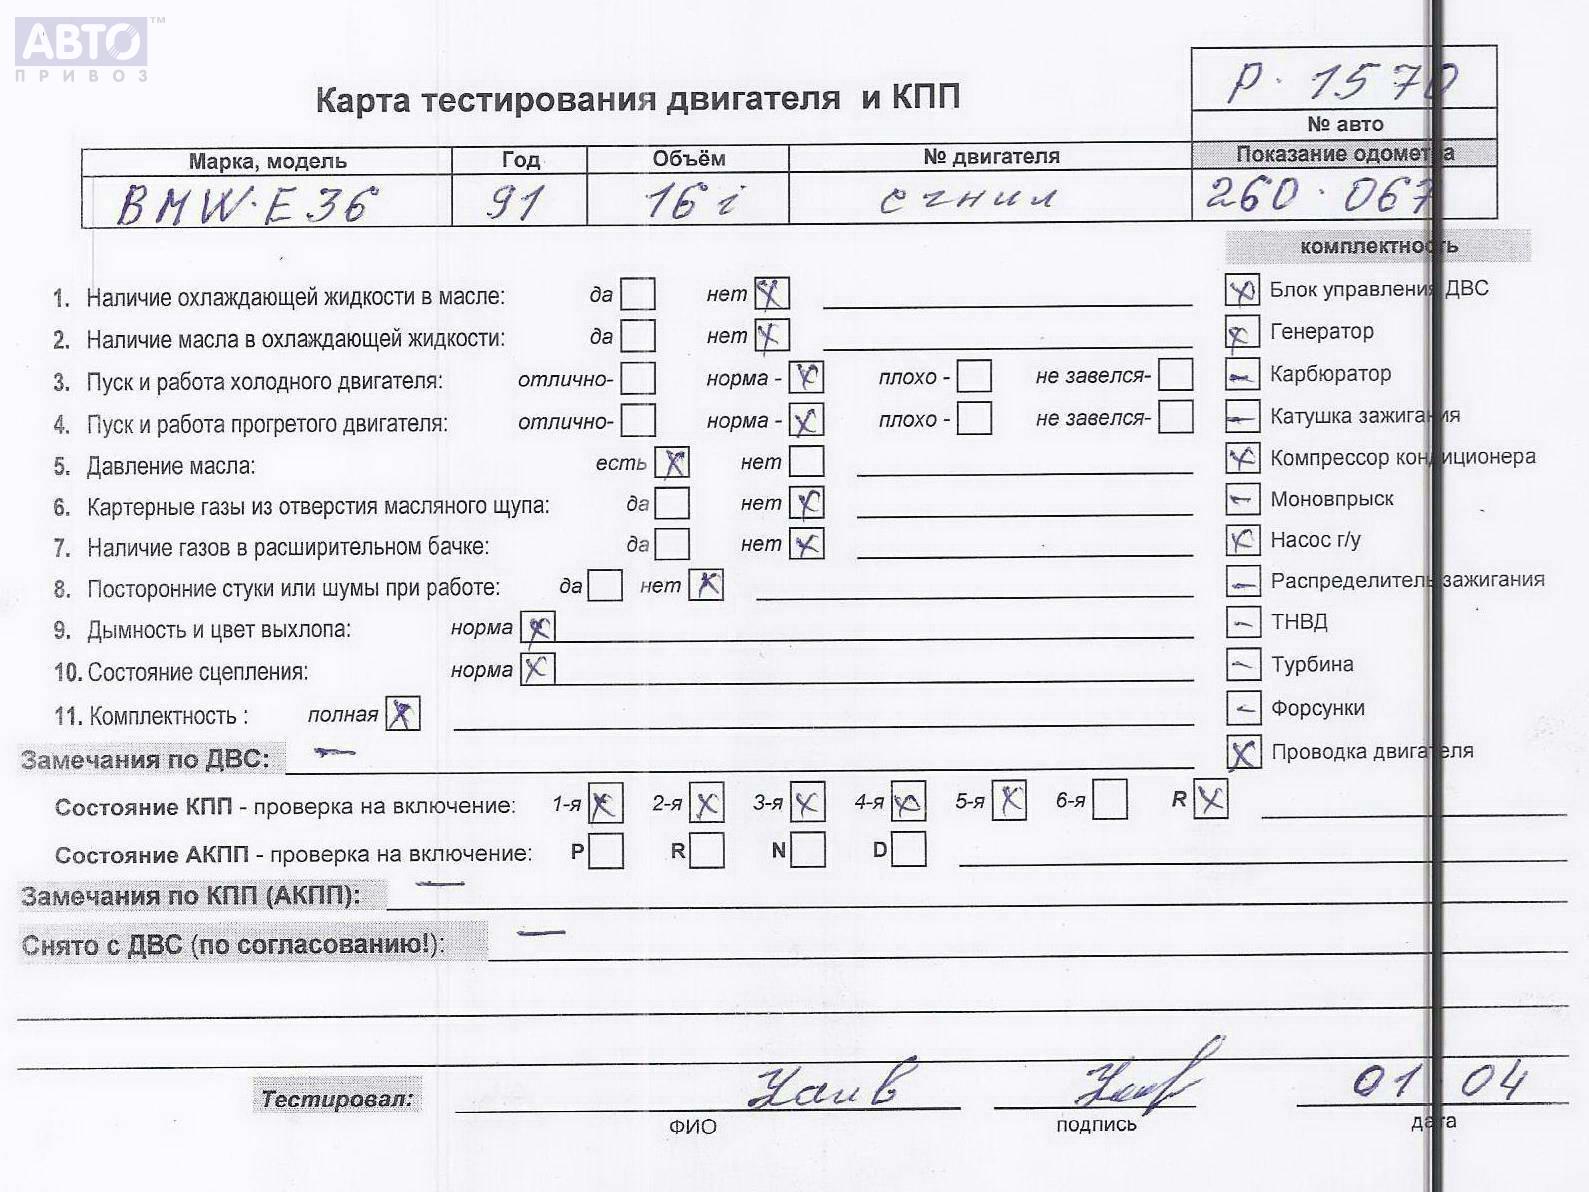 АВТО™
ПРИВОЗ
Р. 1570
Карта тестирования двигателя и КПП
№ авто
Марка, модель Год Объём № двигателя Показание одометра
BMW-E36 91 16i сгнил 260.067
комплектность
1. Наличие охлаждающей жидкости в масле: да нет X
2. Наличие масла в охлаждающей жидкости: да нет X
3. Пуск и работа холодного двигателя: отлично- норма - X плохо - не завелся-
4. Пуск и работа прогретого двигателя: отлично- норма - X плохо - не завелся-
5. Давление масла: есть X нет
6. Картерные газы из отверстия масляного щупа: да нет X
7. Наличие газов в расширительном бачке: да нет X
8. Посторонние стуки или шумы при работе: да нет X
9. Дымность и цвет выхлопа: норма X
10. Состояние сцепления: норма X
11. Комплектность : полная X
X Блок управления ДВС
X Генератор
- Карбюратор
- Катушка зажигания
X Компрессор кондиционера
- Моновпрыск
X Насос г/у
- Распределитель зажигания
- ТНВД
- Турбина
- Форсунки
X Проводка двигателя
Замечания по ДВС: —
Состояние КПП - проверка на включение: 1-я X 2-я X 3-я X 4-я X 5-я X 6-я R X
Состояние АКПП - проверка на включение: P R N D
Замечания по КПП (АКПП): —
Снято с ДВС (по согласованию!): —
Тестировал: 01 04
ФИО подпись дата